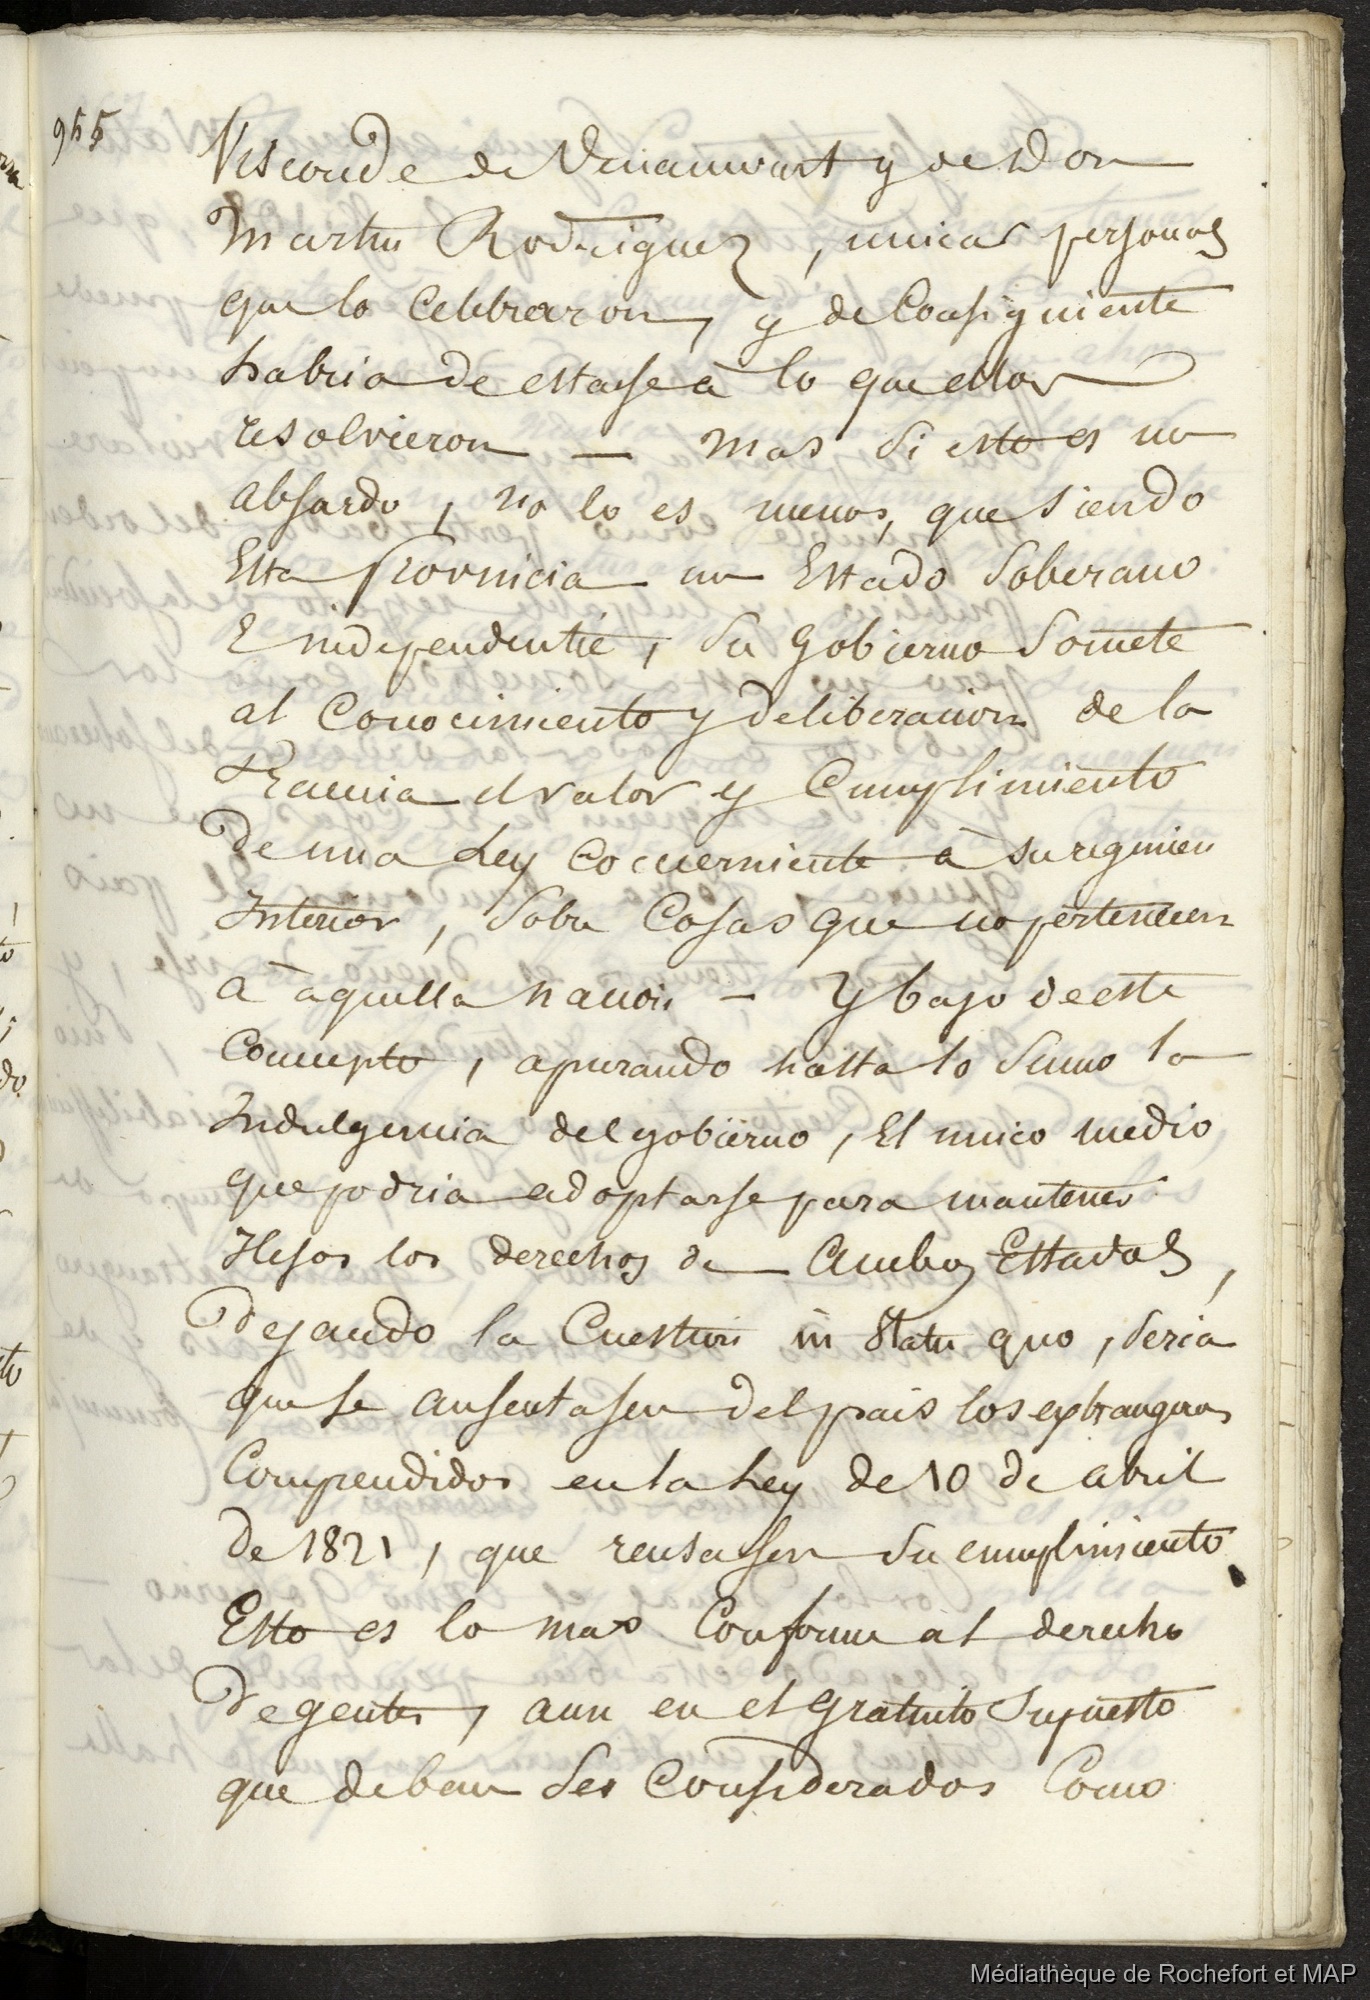 955
Visconde de Venancourt y de Don
Martin Rodriguez, unicas personas
que lo celebraron, y de Consiguiente
habria de estarse à lo que ellos
resolvieron — mas si esto es un
absurdo, no lo es menos, que siendo
Esta Provincia un Estado Soberano
E independiente, su Gobierno Somete
al Conocimiento y deliberacion de la
Francia el valor y Cumplimiento
de una Ley concerniente à su regimen
Interior, sobre Cosas que no pertenecen
à aquella nacion — Y bajo de este
Concepto, apurando hasta lo sumo la
Indulgencia del gobierno, El unico medio
que podria adoptarse para mantener
Ilesos los derechos de Ambos Estados,
dejando la Cuestion in statu quo, seria
que se ausentasen del pais los extrangeros
Compendidos en la Ley de 10 de abril
de 1821, que reusasen su cumplimiento
Esto es lo mas Conforme al derecho
de gentes, aun en el gratuito Supuesto
que deban ser Considerados Como
Médiathèque de Rochefort et MAP